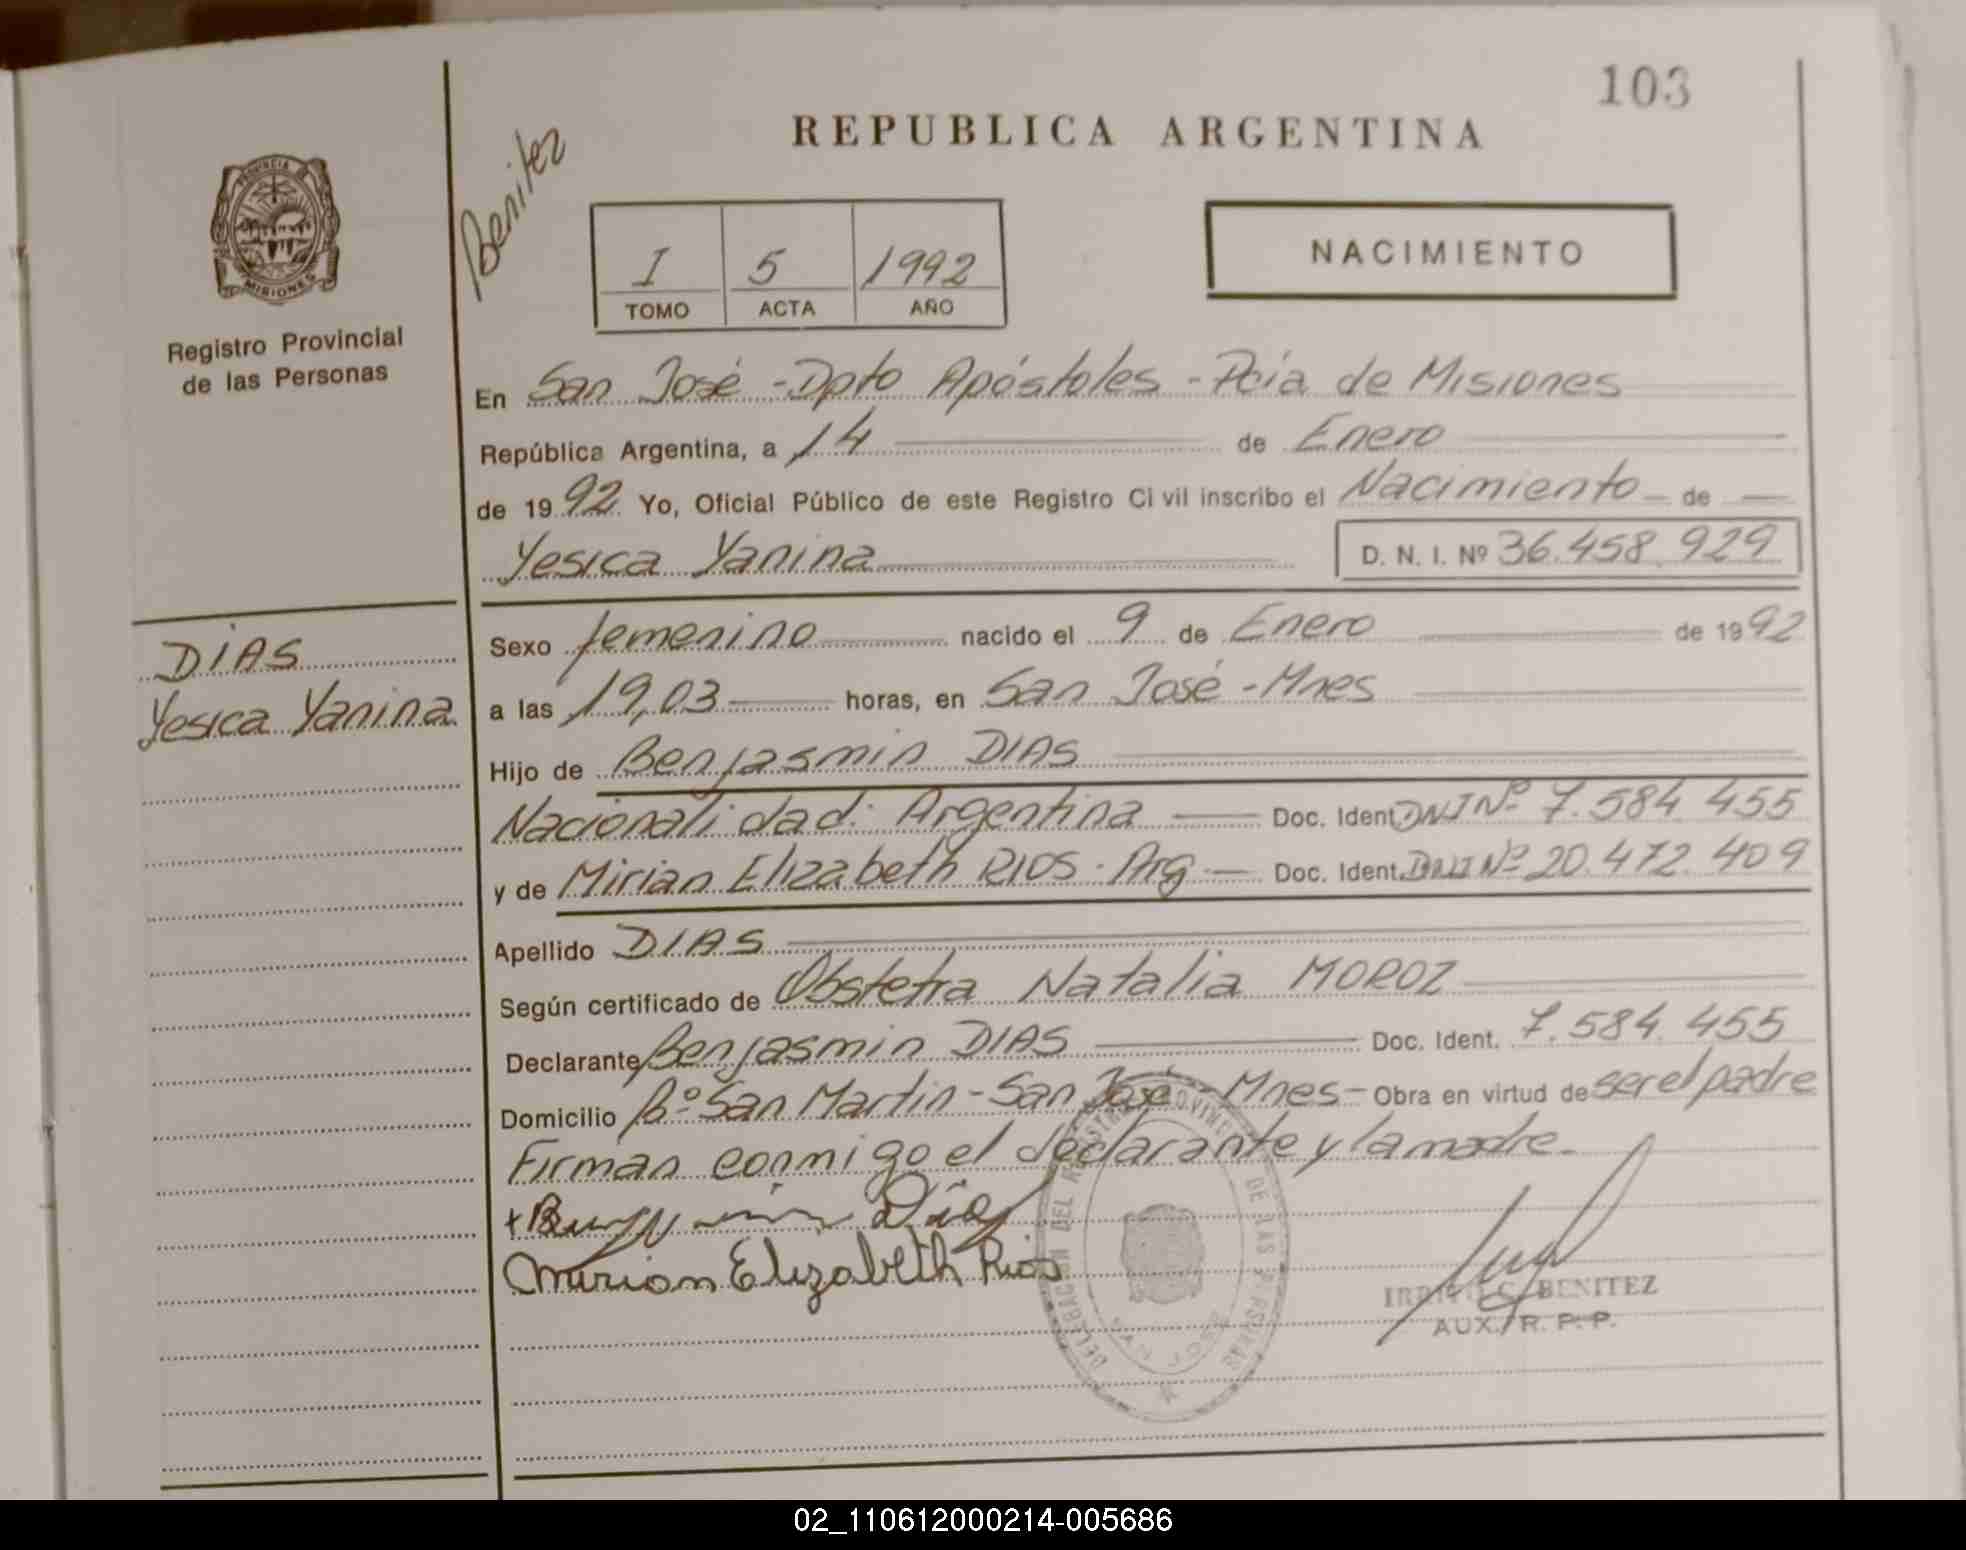 103
REPUBLICA ARGENTINA
Benitez
PROVINCIA DE
MISIONES
Registro Provincial
de las Personas
I 5 1992
TOMO ACTA AÑO
NACIMIENTO
En San José - Dpto Apóstoles - Pcia de Misiones
República Argentina, a 14 de Enero
de 1992 Yo, Oficial Público de este Registro Civil inscribo el Nacimiento de
Yesica Yanina D. N. I. Nº 36.458.929
DIAS
Yesica Yanina
Sexo femenino nacido el 9 de Enero de 1992
a las 19,03 horas, en San José - Mnes
Hijo de Benjasmin DIAS
Nacionalidad: Argentina Doc. Ident. DNI Nº 7.584.455
y de Mirian Elizabeth RIOS - Arg - Doc. Ident. DNI Nº 20.472.409
Apellido DIAS
Según certificado de Obstetra Natalia MOROZ
Declarante Benjasmin DIAS Doc. Ident. 7.584.455
Domicilio Bº San Martin - San José Mnes - Obra en virtud de ser el padre
Firman conmigo el declarante y la madre.
Mirian Elizabeth Rios
DELEGACION DEL REGISTRO PROVINCIAL DE LAS PERSONAS
SAN JOSE
C. BENITEZ
AUX. R. P. P.
02_110612000214-005686